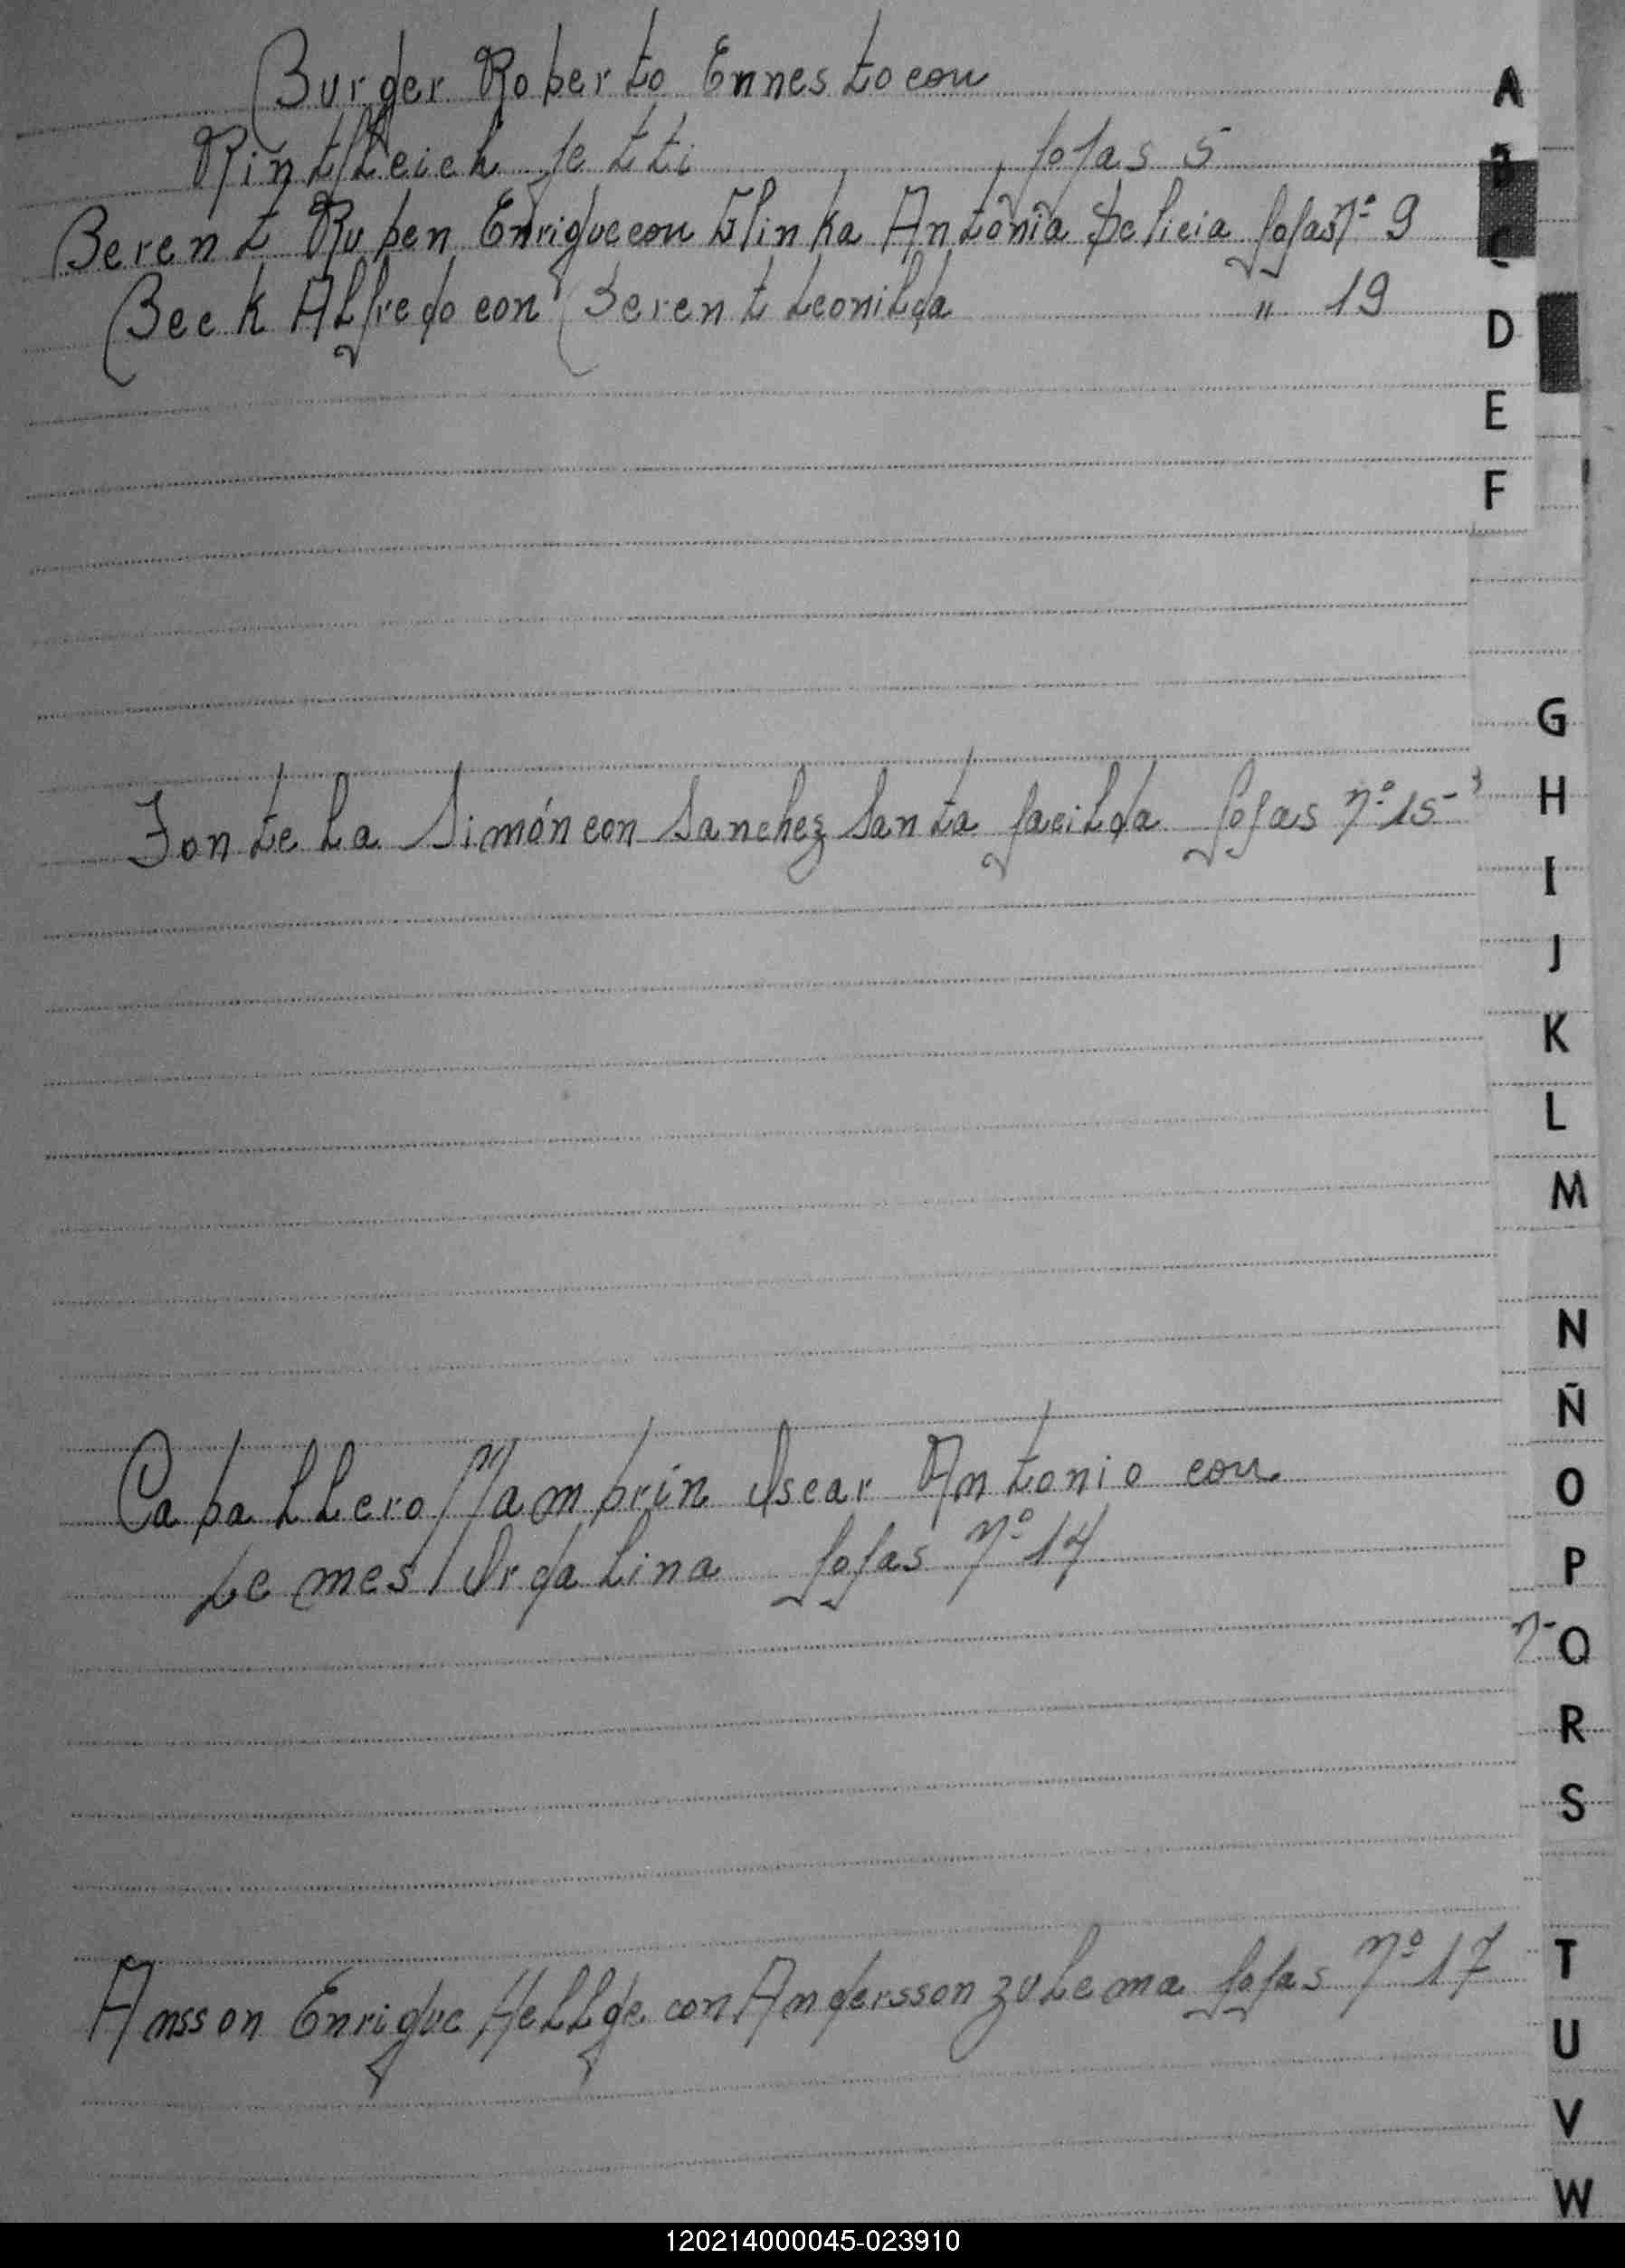 Burger Roberto Ennesto con
Rintfleich Jetti fojas 5
Berent Ruben Enrique con Glinka Antonia Delicia fojas nº 9
Beck Alfredo con Berent Leonilda " 19
Fontela Simón con Sanchez Santa facilda fojas nº 15
Caballero Mambrin Oscar Antonio con
Lemes Ordalina fojas nº 14
Ansson Enrique Hellge con Andersson zulema fojas nº 17
A
B
C
D
E
F
G
H
I
J
K
L
M
N
Ñ
O
P
Q
R
S
T
U
V
W
120214000045-023910